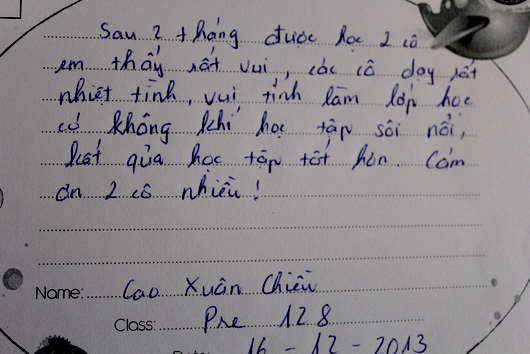 Sau 2 tháng được học 2 cô
em thấy rất vui, các cô dạy rất
nhiệt tình, vui tính làm lớp học
có không khí học tập sôi nổi,
kết qủa học tập tốt hơn. Cám
ơn 2 cô nhiều!
Name: Cao Xuân Chiến
Class: Pre 128
Date: 16 - 12 - 2013